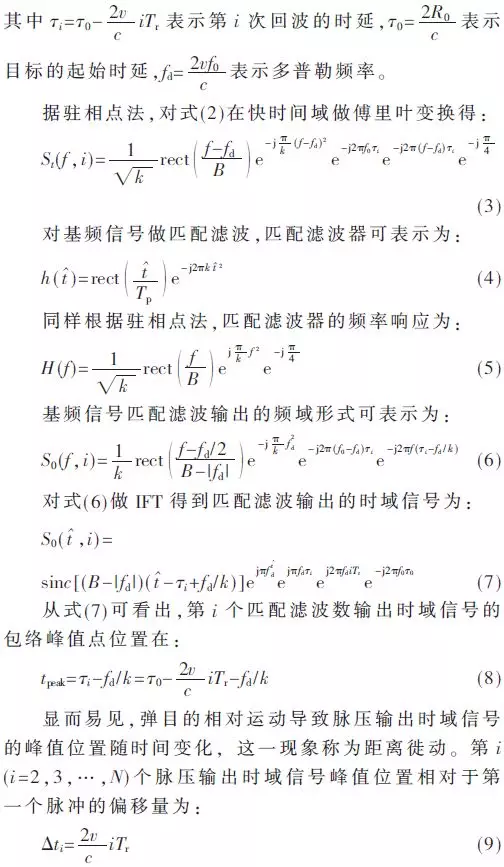 其中 τi=τ0-2v/c iTr 表示第 i 次回波的时延,τ0=2R0/c 表示
目标的起始时延,fd=2vf0/c 表示多普勒频率。
据驻相点法,对式(2)在快时间域做傅里叶变换得:
St(f,i)=1/√k rect((f-fd)/B) e^{-jπ/k(f-fd)²} e^{-j2πf0τi} e^{-j2π(f-fd)τi} e^{-jπ/4}
(3)
对基频信号做匹配滤波,匹配滤波器可表示为:
h(t̂)=rect(t̂/Tp) e^{-j2πkt̂²} (4)
同样根据驻相点法,匹配滤波器的频率响应为:
H(f)=1/√k rect(f/B) e^{jπ/k f²} e^{-jπ/4} (5)
基频信号匹配滤波输出的频域形式可表示为:
S0(f,i)=1/k rect((f-fd/2)/(B-|fd|)) e^{-jπ/k fd²} e^{-j2π(f0-fd)τi} e^{-j2πf(τi-fd/k)} (6)
对式(6)做 IFT 得到匹配滤波输出的时域信号为:
S0(t̂,i)=
sinc[(B-|fd|)(t̂-τi+fd/k)]e^{jπfd} e^{jπfdτi} e^{j2πfdiTi} e^{-j2πf0τ0} (7)
从式(7)可看出,第 i 个匹配滤波数输出时域信号的
包络峰值点位置在:
tpeak=τi-fd/k=τ0-2v/c iTr-fd/k (8)
显而易见,弹目的相对运动导致脉压输出时域信号
的峰值位置随时间变化,这一现象称为距离徙动。第 i
(i=2,3,…,N)个脉压输出时域信号峰值位置相对于第
一个脉冲的偏移量为:
Δti=2v/c iTr (9)